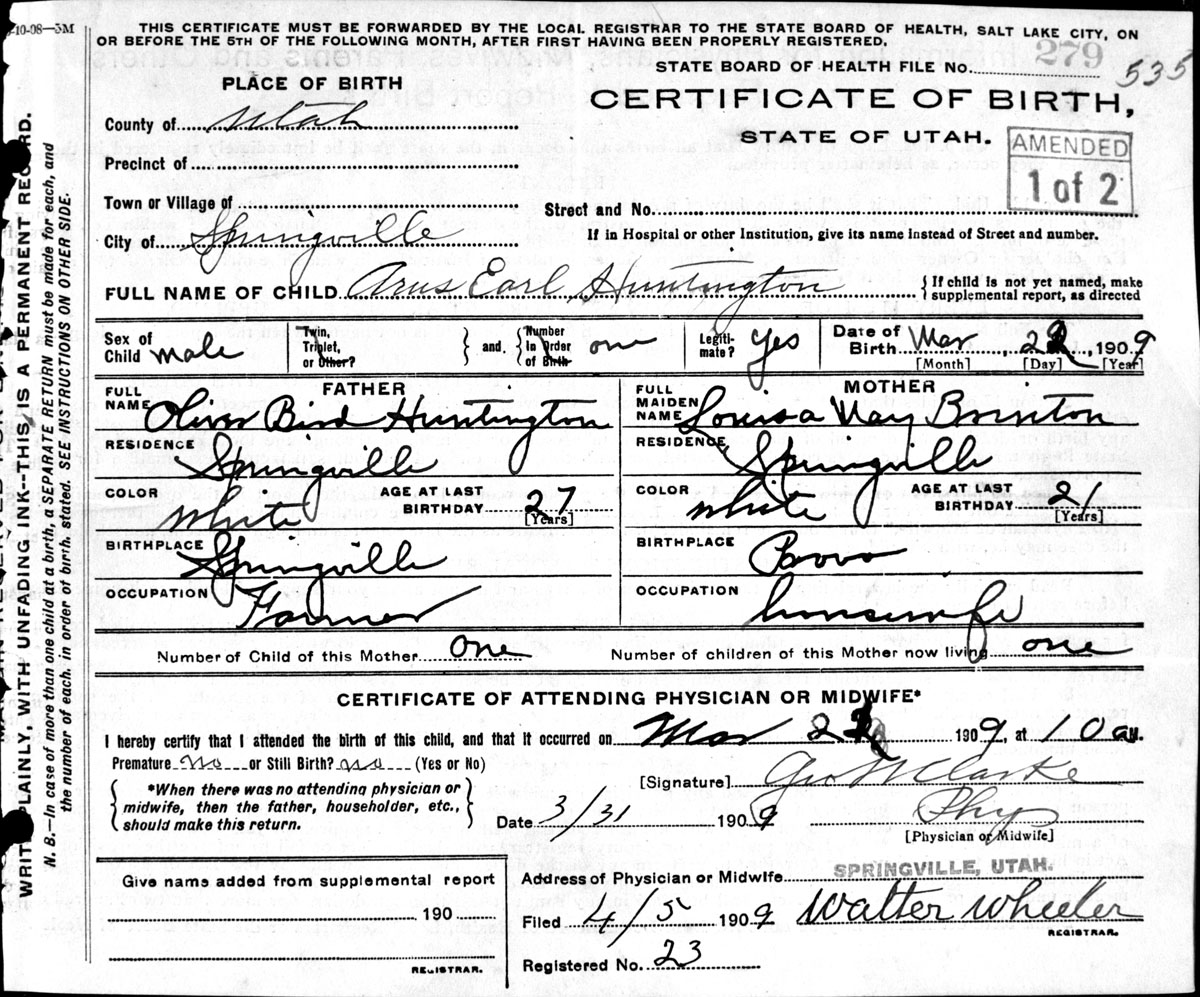 -10-08—5M
THIS CERTIFICATE MUST BE FORWARDED BY THE LOCAL REGISTRAR TO THE STATE BOARD OF HEALTH, SALT LAKE CITY, ON
OR BEFORE THE 5TH OF THE FOLLOWING MONTH, AFTER FIRST HAVING BEEN PROPERLY REGISTERED.
STATE BOARD OF HEALTH FILE No. 279 535
PLACE OF BIRTH
CERTIFICATE OF BIRTH,
STATE OF UTAH.
AMENDED
1 of 2
County of Utah
Precinct of
Town or Village of
Street and No.
City of Springville
If in Hospital or other Institution, give its name instead of Street and number.
FULL NAME OF CHILD Arus Earl Huntington { If child is not yet named, make
supplemental report, as directed
Sex of Child male
Twin, Triplet, or Other? } and { Number in Order of Birth one
Legitimate? Yes
Date of Birth Mar, 2, 1909
[Month] [Day] [Year]
FATHER
FULL NAME Oliver Bird Huntington
MOTHER
FULL MAIDEN NAME Louisa May Brinton
RESIDENCE Springville
RESIDENCE Springville
COLOR White AGE AT LAST BIRTHDAY 27 [Years]
COLOR White AGE AT LAST BIRTHDAY 21 [Years]
BIRTHPLACE Springville
BIRTHPLACE Provo
OCCUPATION Farmer
OCCUPATION housewife
Number of Child of this Mother one Number of children of this Mother now living one
CERTIFICATE OF ATTENDING PHYSICIAN OR MIDWIFE*
I hereby certify that I attended the birth of this child, and that it occurred on Mar 2 1909 at 10 a M.
Premature no or Still Birth? no (Yes or No)
*When there was no attending physician or midwife, then the father, householder, etc., should make this return.
[Signature] Geo W Clarke
Date 3/31 1909 Phy
[Physician or Midwife]
Give name added from supplemental report
190
REGISTRAR.
Address of Physician or Midwife SPRINGVILLE, UTAH.
Filed 4/5 1909 Walter Wheeler
REGISTRAR.
Registered No. 23
WRITE PLAINLY, WITH UNFADING INK--THIS IS A PERMANENT RECORD.
N. B.—In case of more than one child at a birth, a SEPARATE RETURN must be made for each, and
the number of each, in order of birth, stated. SEE INSTRUCTIONS ON OTHER SIDE.